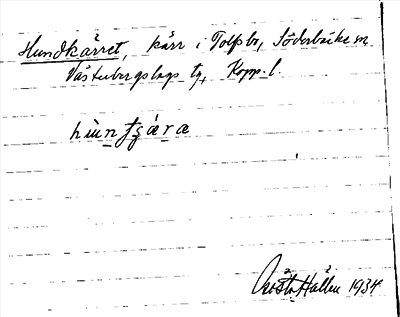 Hundkärret, kärr i Tolfsbo, Söderbärke sn,
Västerbergslags tg, Kopp. l.
Gösta Hallén 1934